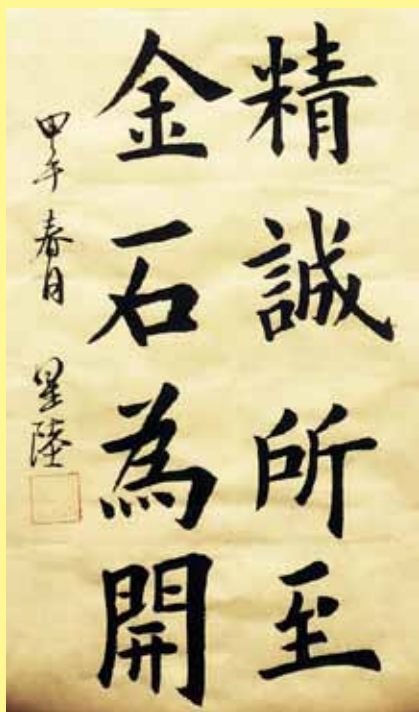 精誠所至
金石為開
甲午春月 星陸